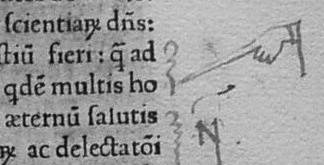 ſcientiaꝝ dn̄s:
ſtiū fieri: q̃ ad
qdē multis ho
æternū ſalutis
ꝝ ac delectatōi
N